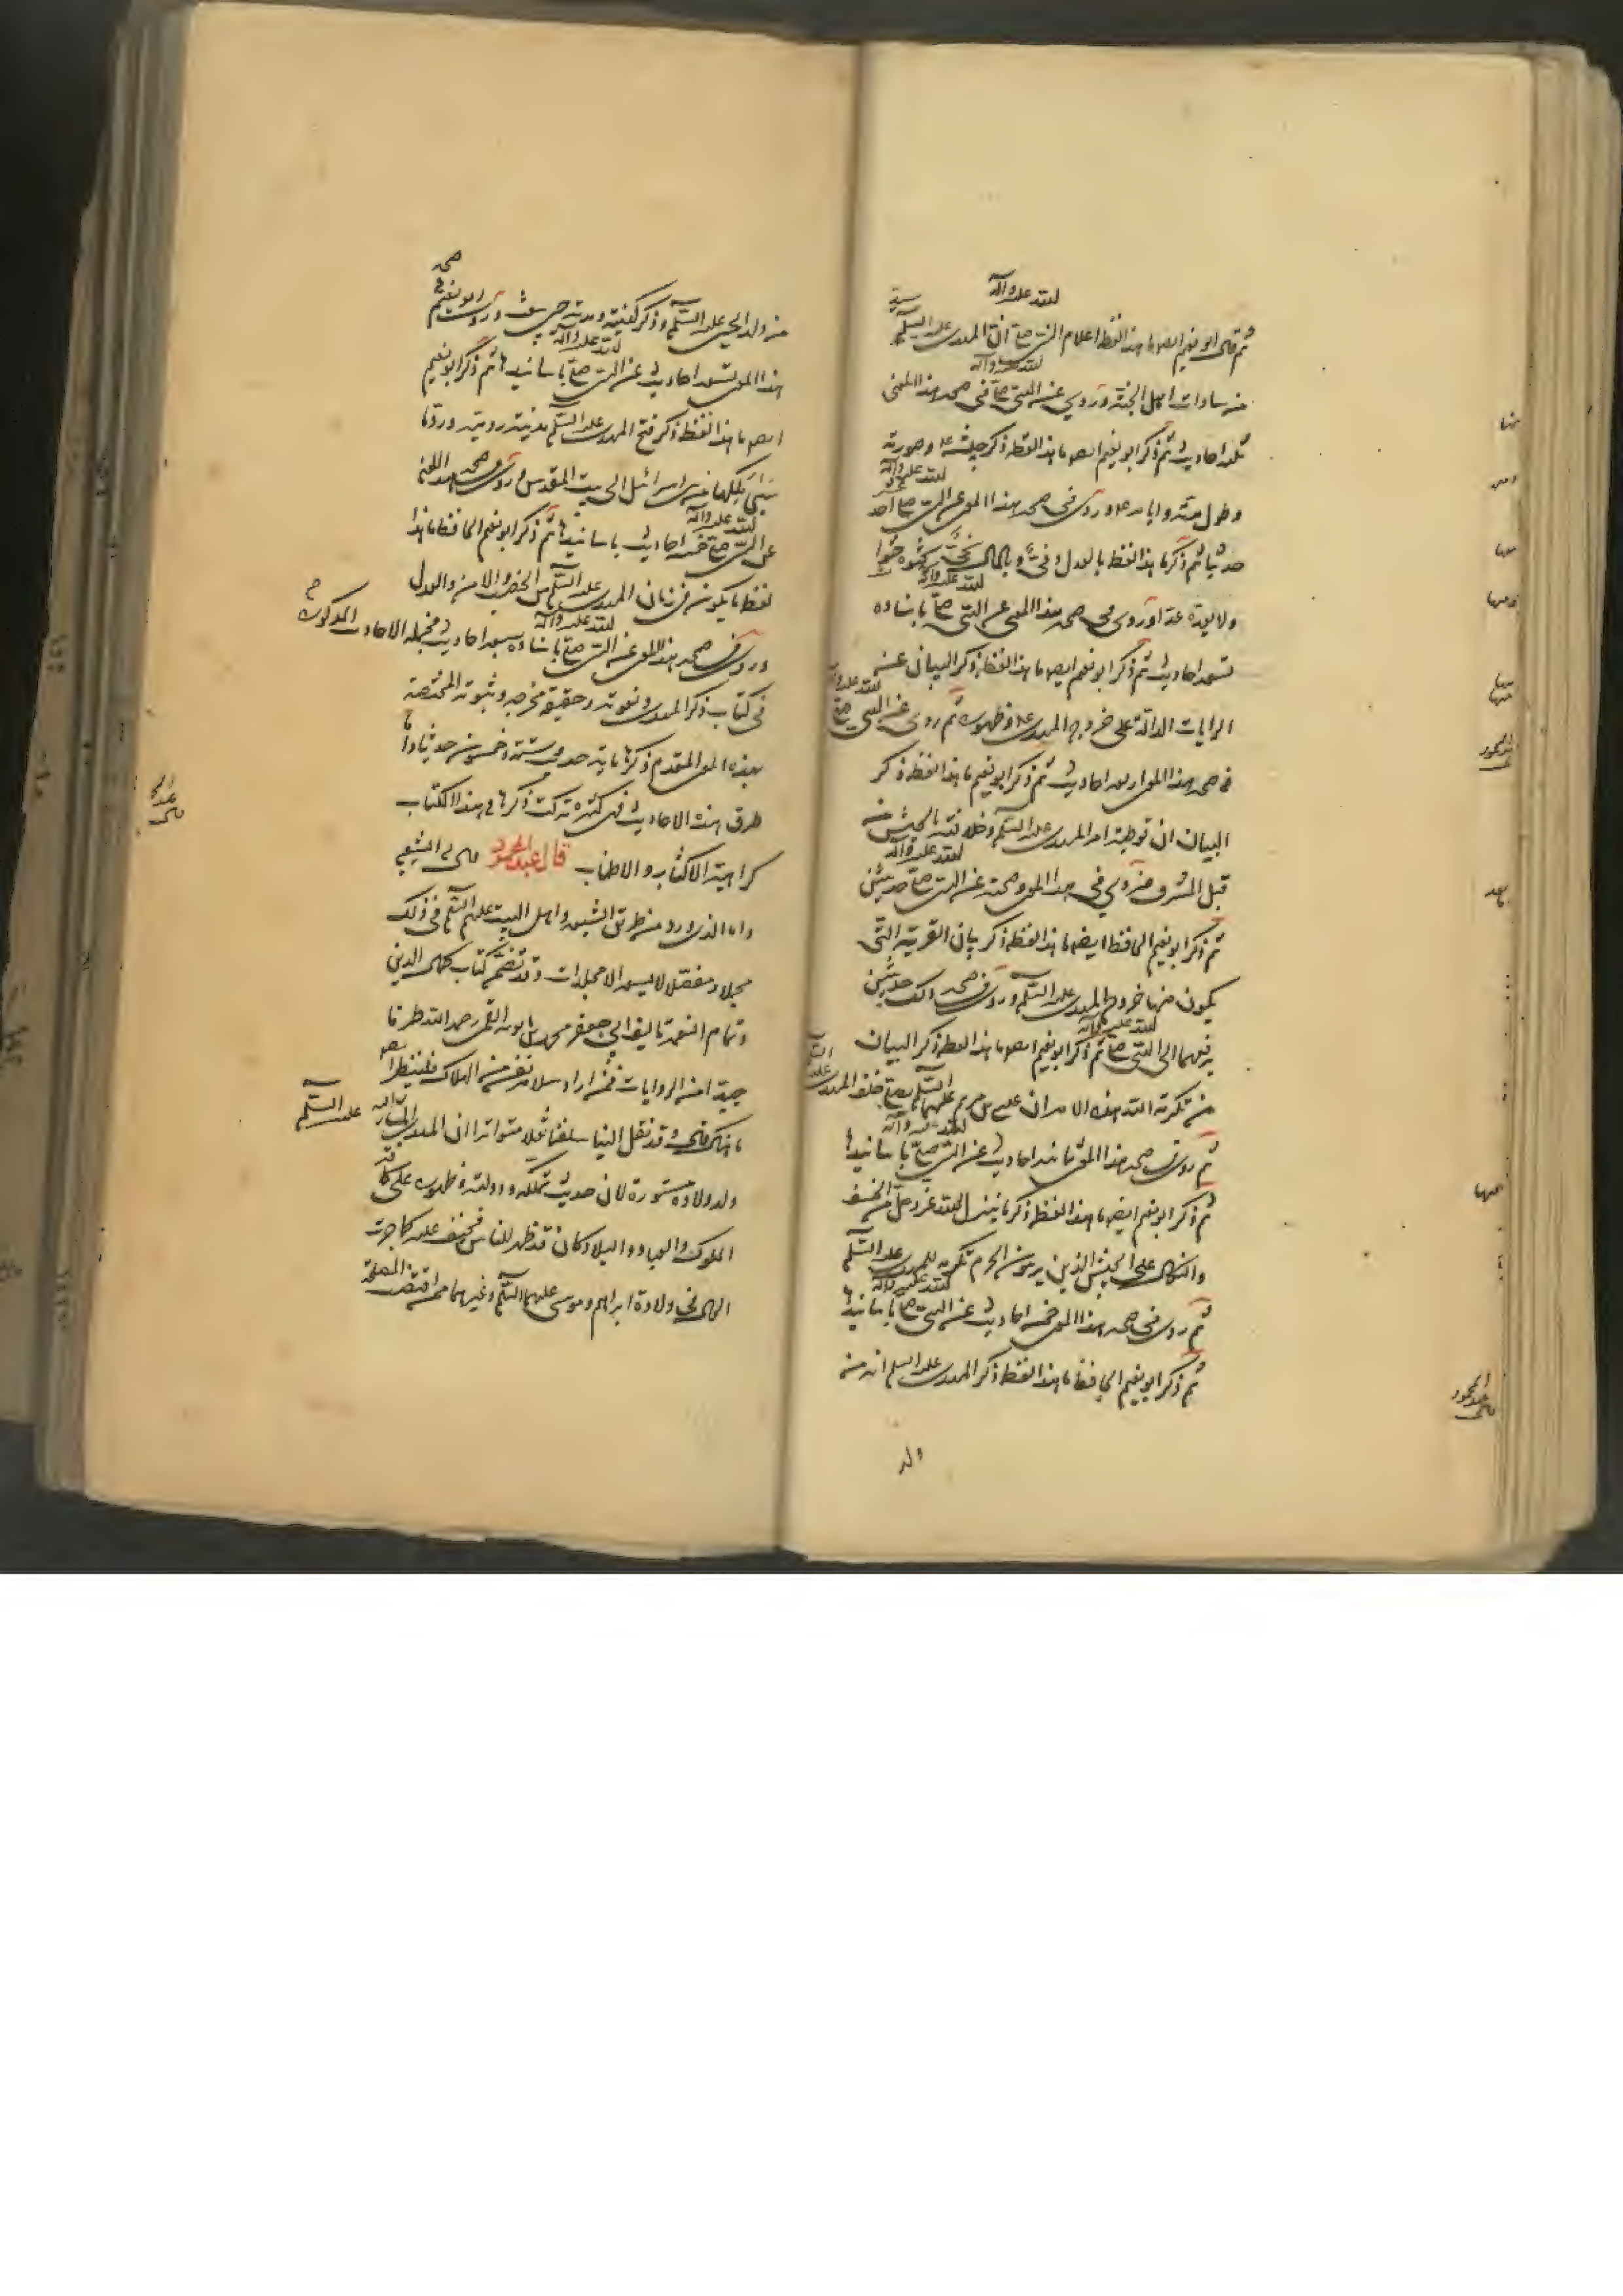 ثم قال ابو نعيم ايضا ما هذا لفظه اعلام النبي صلى الله عليه وآله ان المهدي عليه السلم سيد
من سادات اهل الجنة وروى عن النبي صلى الله عليه وآله في صحة هذا المعنى
ثلثة احاديث ثم ذكر ابو نعيم ايضا ما هذا لفظه ذكر جيشه وصورته
وطول مدته وايامه وروى في صحة هذا المعنى عن النبي صلى الله عليه وآله احد عشر
حديثا ثم ذكر ما هذا لفظه بالعدل وفي وبالمال يحثوه حثوا
ولا يعده عدا وروى في صحة هذا المعنى عن النبي صلى الله عليه وآله باسناده
تسعة احاديث ثم ذكر ابو نعيم ايضا ما هذا لفظه ذكر البيان عن
الرايات الدالة على خروج المهدي وظهوره ثم روى عن النبي صلى الله عليه وآله
في صحة هذا المعنى اربعة احاديث ثم ذكر ابو نعيم ما هذا لفظه ذكر
البيان ان توطية امر المهدي عليه السلم وخلافته بالجيش من
قبل المشرق وروى في هذا المعنى وصحته عن النبي صلى الله عليه وآله حديثين
ثم ذكر ابو نعيم الحافظ ايضا ما هذا لفظه ذكر بيان القرية التي
يكون منها خروج المهدي عليه السلم وروى في صحة ذلك حديثين
يرفعهما الى النبي صلى الله عليه وآله ثم ذكر ابو نعيم ايضا ما هذا لفظه ذكر البيان
من تكرمة الله هذه الامة ان عيسى بن مريم عليهما السلم يصلي خلف المهدي عليه السلم
ثم روى في صحة هذا المعنى ثمانية احاديث عن النبي صلى الله عليه وآله باسانيدها
ثم ذكر ابو نعيم ايضا ما هذا لفظه ذكر ما ينزل الله عز وجل من الخسف
والنكال على الجيش الذين يرمون الحرم تكرمة للمهدي عليه السلم
ثم روى في صحة هذا المعنى خمسة احاديث عن النبي صلى الله عليه وآله باسانيدها
ثم ذكر ابو نعيم الحافظ ما هذا لفظه ذكر المهدي عليه السلم انه من
ولد
من ولد الحسين عليه السلم وذكر كنيته وروى ابو نعيم في صحة
هذا المعنى تسعة احاديث عن النبي صلى الله عليه وآله باسانيدها ثم ذكر ابو نعيم
ايضا ما هذا لفظه ذكر فتح المهدي عليه السلم مدينة رومية ورده ما
سبى ملكها من بني اسرائيل الى بيت المقدس وروى في صحة هذا المعنى
عن النبي صلى الله عليه وآله خمسة احاديث باسانيدها ثم ذكر ابو نعيم الحافظ ما هذا
لفظه ما يكون في زمان المهدي عليه السلم من الخصب والامن والعدل
وروى في صحة هذا المعنى عن النبي صلى الله عليه وآله باسناده سبعة احاديث فجملة الاحاديث المذكورة
في كتاب ذكر المهدي ونعوته وحقيقة مخرجه وثبوته المختصة
بهذه المعنى المتقدم ذكرها ماية حديث وستة وخمسون حديثا واما
طرق هذه الاحاديث فهي كثيرة تركت ذكرها في هذا الكتاب
كراهية الاكثار والاطناب قال عبد المحمود
واما الذي ورد من طريق الشيعة واهل البيت عليهم السلم في ذلك
مجملا ومفصلا لا يسعه الا مجلدات وقد تضمن كتاب كمال الدين
وتمام النعمة تاليف ابي جعفر محمد بن بابويه القمي رحمه الله طرفا
جيدا من الروايات فمن اراد سلامة نفسه من الهلاك فلينظر
ما هناك وقد نقل الينا سلفنا نقلا متواترا ان المهدي المشار اليه عليه السلم
ولد ولادة مستورة لان حديث تملكه ودولته وظهوره على كافة
الملوك والعباد والبلاد كان قد ظهر للناس فخيف عليه كما جرت
الحال في ولادة ابراهيم وموسى عليهما السلم وغيرهما مما اقتضت المصلحة